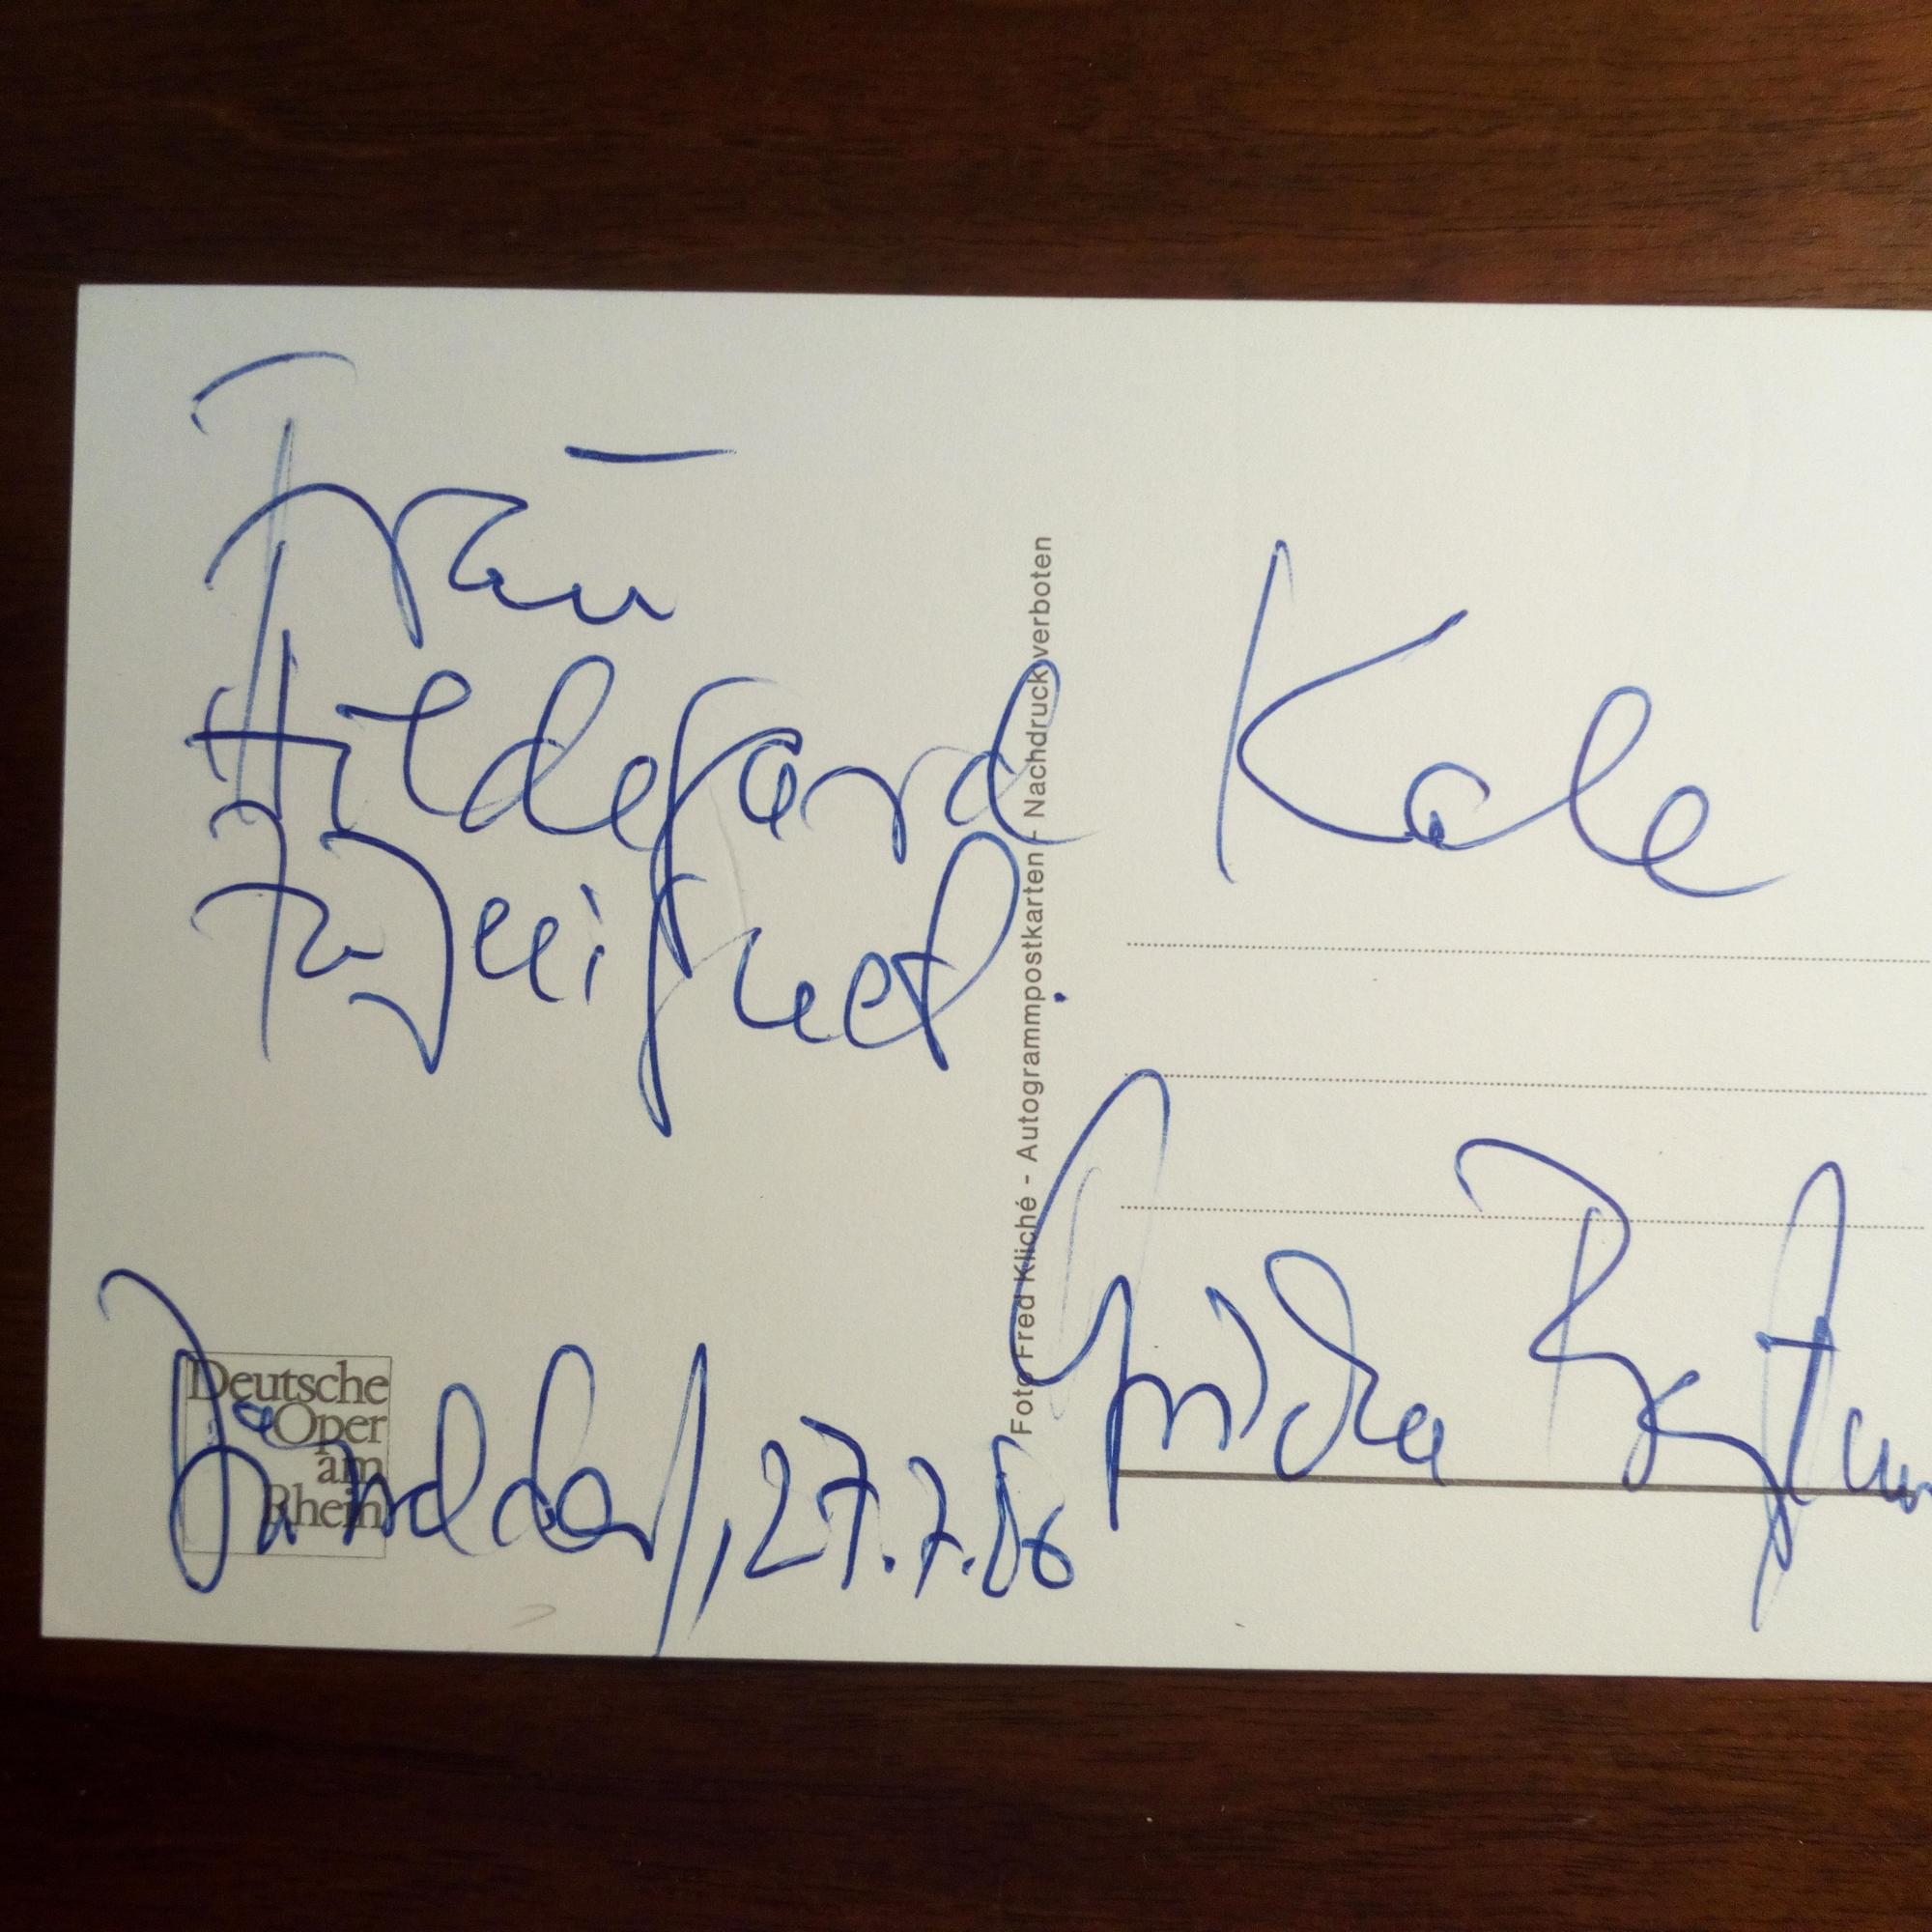 Frau
Hildegard Kale
zugeeignet.
Düsseldorf, 27.7.86
Deutsche
Oper
am
Rhein
Foto Fred Kliché - Autogrammpostkarten - Nachdruck verboten